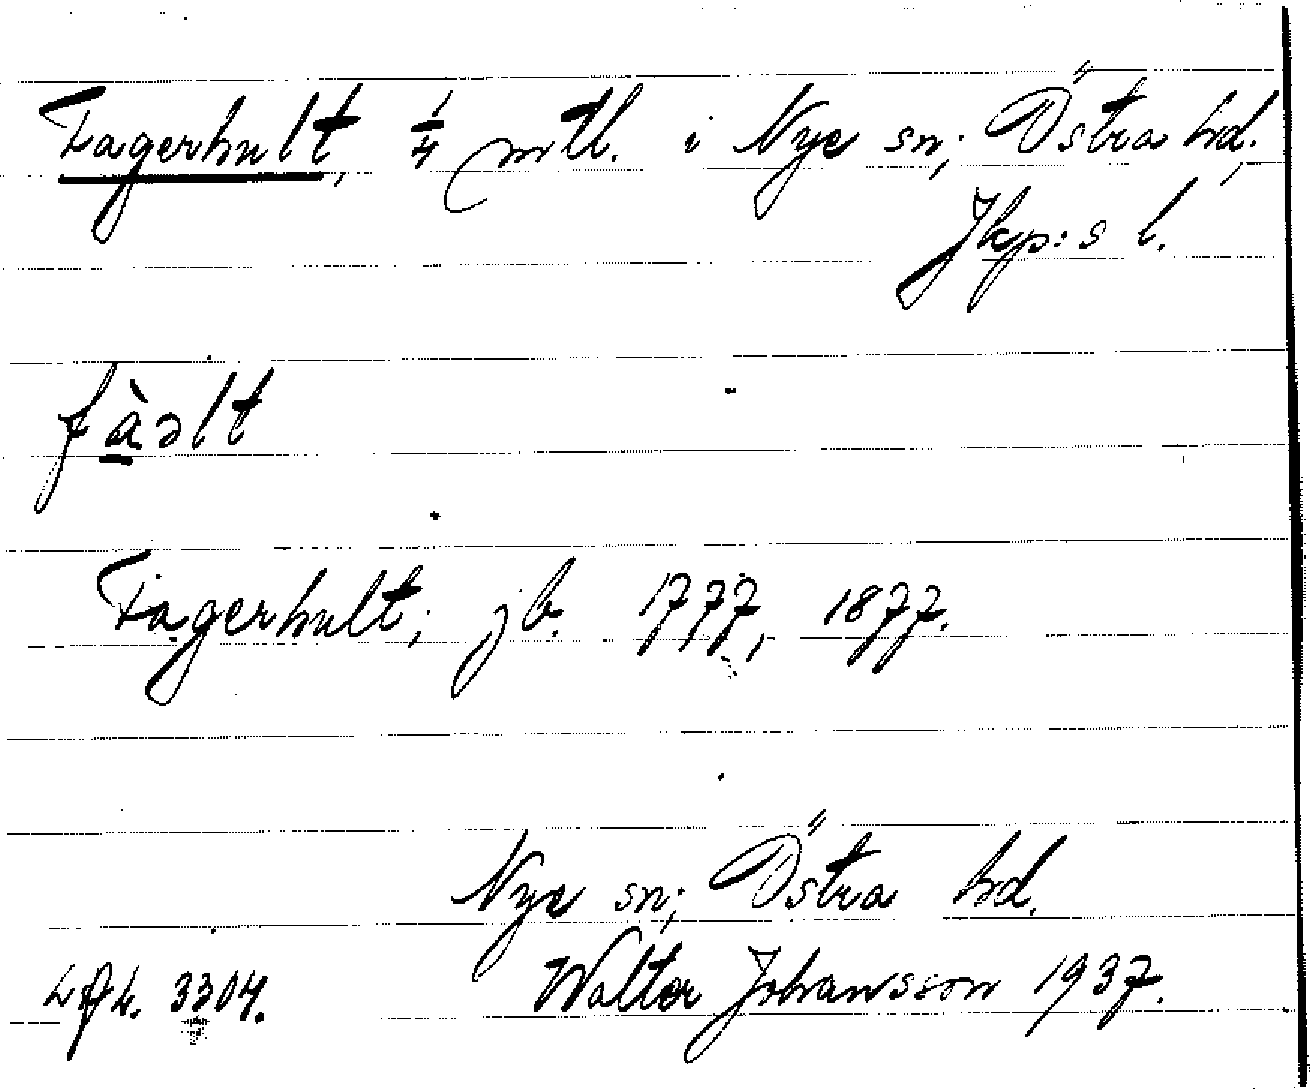 Fagerhult, 1/4 mtl. i Nye sn; Östra hd,
Jkp:s l.
fàəlt
Fagerhult; jb. 1777, 1877.
Nye sn; Östra hd.
3304. Walter Johansson 1937.